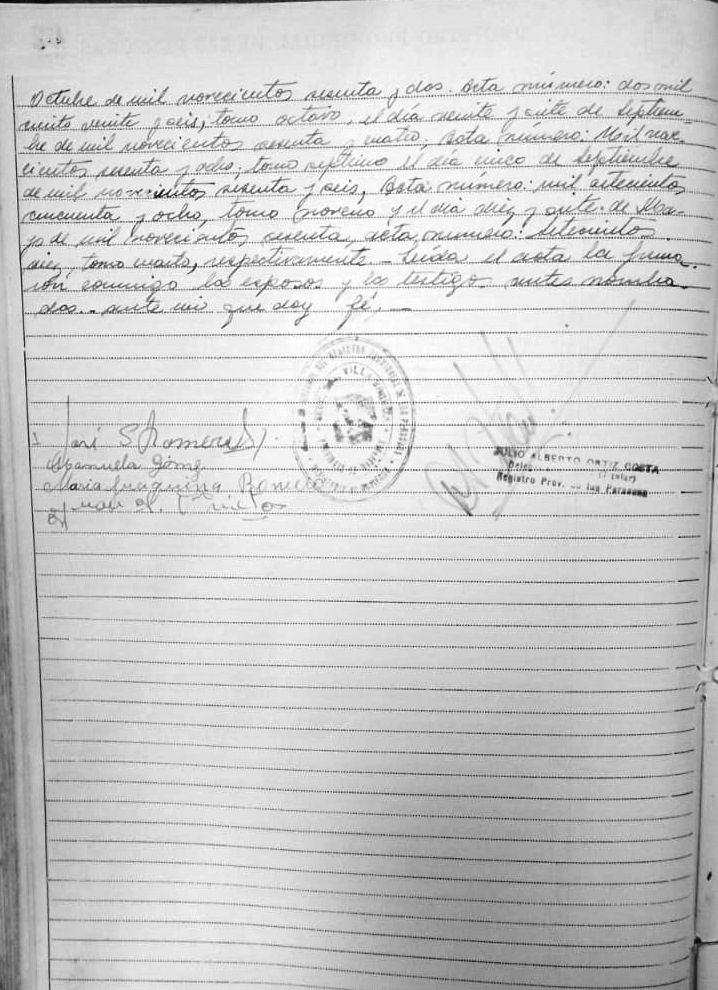 Octubre de mil novecientos sesenta y dos. Acta número: dos mil
ciento veinte y seis, tomo octavo, el día veinte y siete de Septiem-
bre de mil novecientos sesenta y cuatro, Acta número: Mil nove-
cientos sesenta y ocho, tomo septimo el día cinco de Septiembre
de mil novecientos sesenta y seis, Acta número: mil setecientos
cincuenta y ocho, tomo noveno y el día diez y siete de Ma-
yo de mil novecientos sesenta, acta número: Setecientos
diez, tomo cuarto, respectivamente - Leída el acta la firma-
ron conmigo los esposos y los testigos antes nombra-
dos.- ante mí que doy fé,-
José S Romero
Manuela Gómez
Maria Romero
JULIO ALBERTO ORTIZ COSTA
(Titular)
Registro Prov. de las Personas